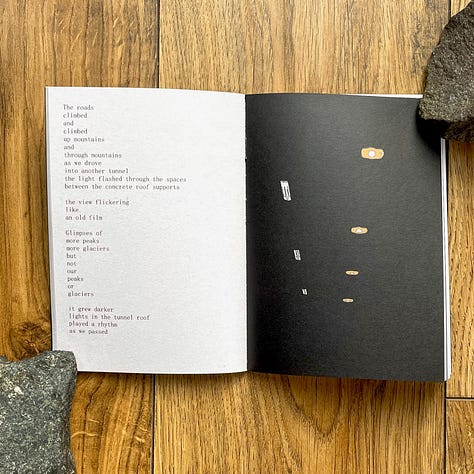 The roads
climbed
and
climbed
up mountains
and
through mountains
as we drove
into another tunnel
the light flashed through the spaces
between the concrete roof supports
the view flickering
like
an old film
Glimpses of
more peaks
more glaciers
but
not
our
peaks
or
glaciers
it grew darker
lights in the tunnel roof
played a rhythm
as we passed